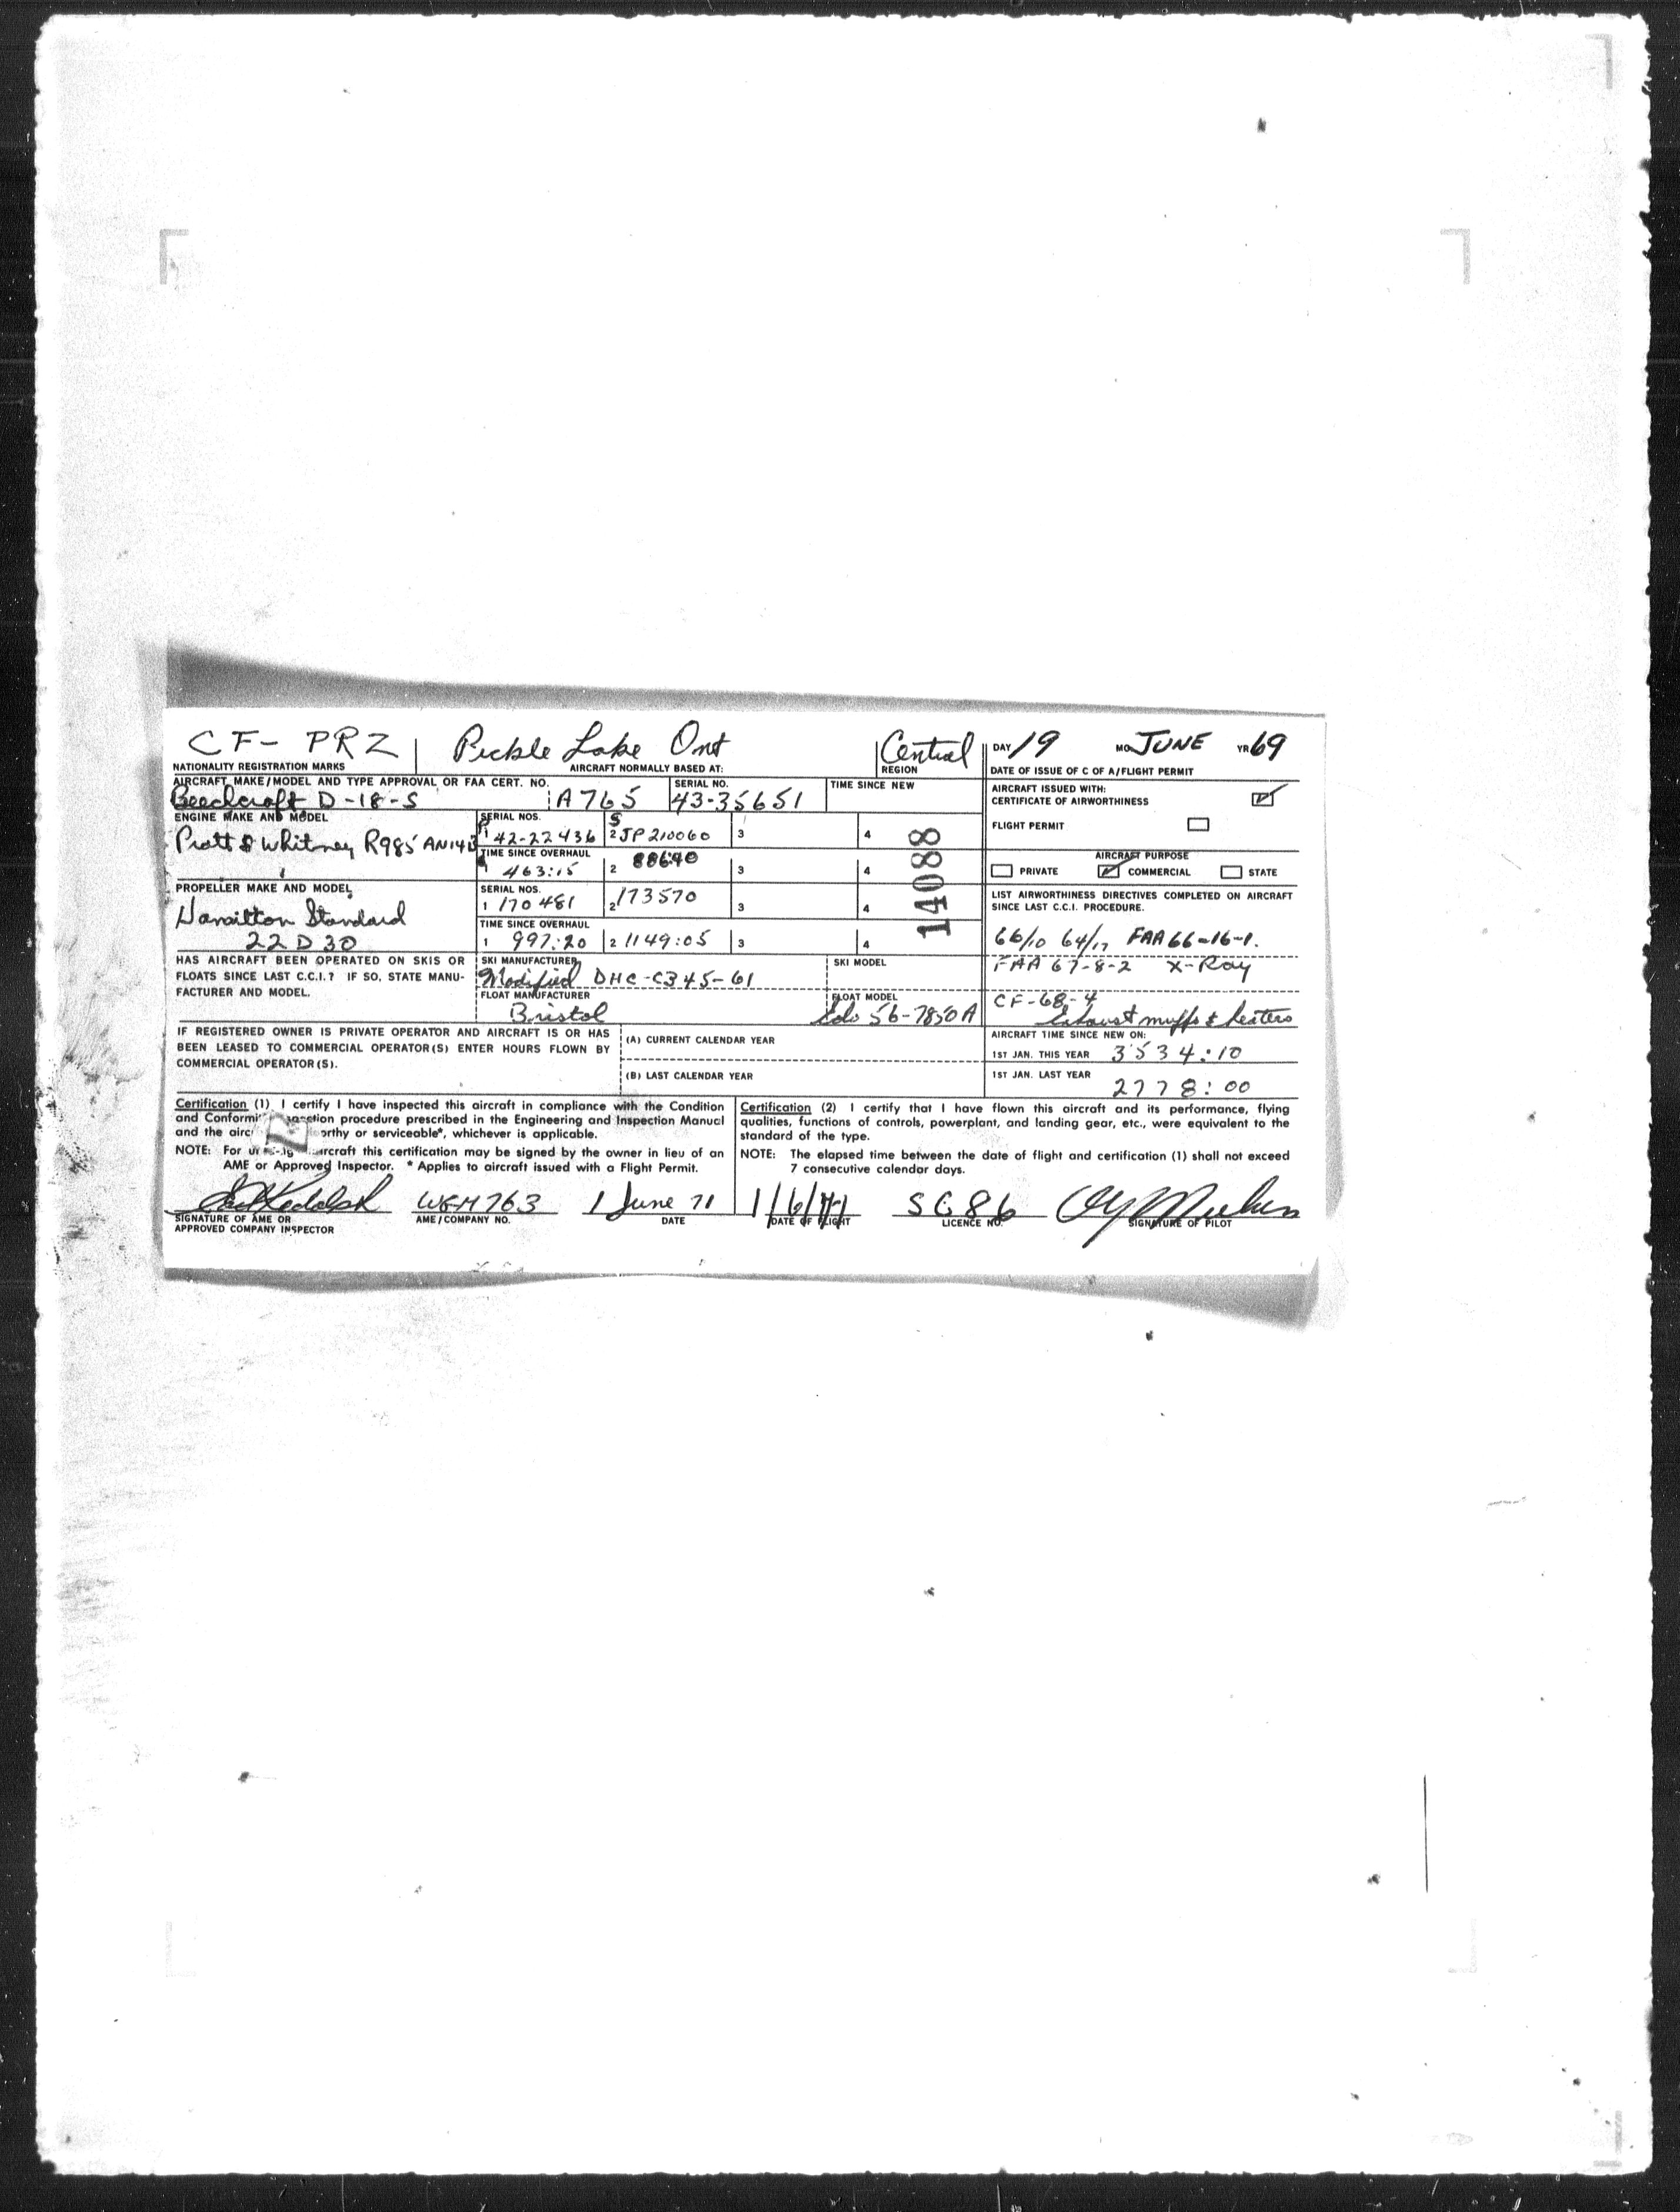 CF- PRZ Pickle Lake Ont Central DAY 19 MO. JUNE YR 69
NATIONALITY REGISTRATION MARKS AIRCRAFT NORMALLY BASED AT: REGION DATE OF ISSUE OF C OF A/FLIGHT PERMIT
AIRCRAFT MAKE/MODEL AND TYPE APPROVAL OR FAA CERT. NO. SERIAL NO. TIME SINCE NEW
Beechcraft D-18-S A765 43-35651
AIRCRAFT ISSUED WITH:
CERTIFICATE OF AIRWORTHINESS
FLIGHT PERMIT
ENGINE MAKE AND MODEL SERIAL NOS.
Pratt & Whitney R985 AN14B 1 42-22436 2 JP 210060 3 4
TIME SINCE OVERHAUL
1 463:15 2 3 4
14088
AIRCRAFT PURPOSE
PRIVATE COMMERCIAL STATE
PROPELLER MAKE AND MODEL SERIAL NOS.
Hamilton Standard 1 170481 2 173570 3 4
TIME SINCE OVERHAUL
22D30 1 997:20 2 1149:05 3 4
LIST AIRWORTHINESS DIRECTIVES COMPLETED ON AIRCRAFT
SINCE LAST C.C.I. PROCEDURE.
66/10 64/17 FAA 66-16-1.
FAA 67-8-2 X-Ray
CF-68-4
Exhaust muffs & heaters
HAS AIRCRAFT BEEN OPERATED ON SKIS OR
FLOATS SINCE LAST C.C.I.? IF SO, STATE MANU-
FACTURER AND MODEL.
SKI MANUFACTURER SKI MODEL
Modified DHC-C345-61
FLOAT MANUFACTURER FLOAT MODEL
Bristol Edo 56-7850A
IF REGISTERED OWNER IS PRIVATE OPERATOR AND AIRCRAFT IS OR HAS
BEEN LEASED TO COMMERCIAL OPERATOR(S) ENTER HOURS FLOWN BY
COMMERCIAL OPERATOR(S).
(A) CURRENT CALENDAR YEAR
(B) LAST CALENDAR YEAR
AIRCRAFT TIME SINCE NEW ON:
1ST JAN. THIS YEAR 3534:10
1ST JAN. LAST YEAR 2778:00
Certification (1) I certify I have inspected this aircraft in compliance with the Condition
and Conformi procedure prescribed in the Engineering and Inspection Manual
and the airc orthy or serviceable*, whichever is applicable.
NOTE: For ircraft this certification may be signed by the owner in lieu of an
AME or Approved Inspector. * Applies to aircraft issued with a Flight Permit.
Certification (2) I certify that I have flown this aircraft and its performance, flying
qualities, functions of controls, powerplant, and landing gear, etc., were equivalent to the
standard of the type.
NOTE: The elapsed time between the date of flight and certification (1) shall not exceed
7 consecutive calendar days.
WGM763 1 June 71 1/6/71 SC86
SIGNATURE OF AME OR AME/COMPANY NO. DATE DATE OF FLIGHT LICENCE NO. SIGNATURE OF PILOT
APPROVED COMPANY INSPECTOR